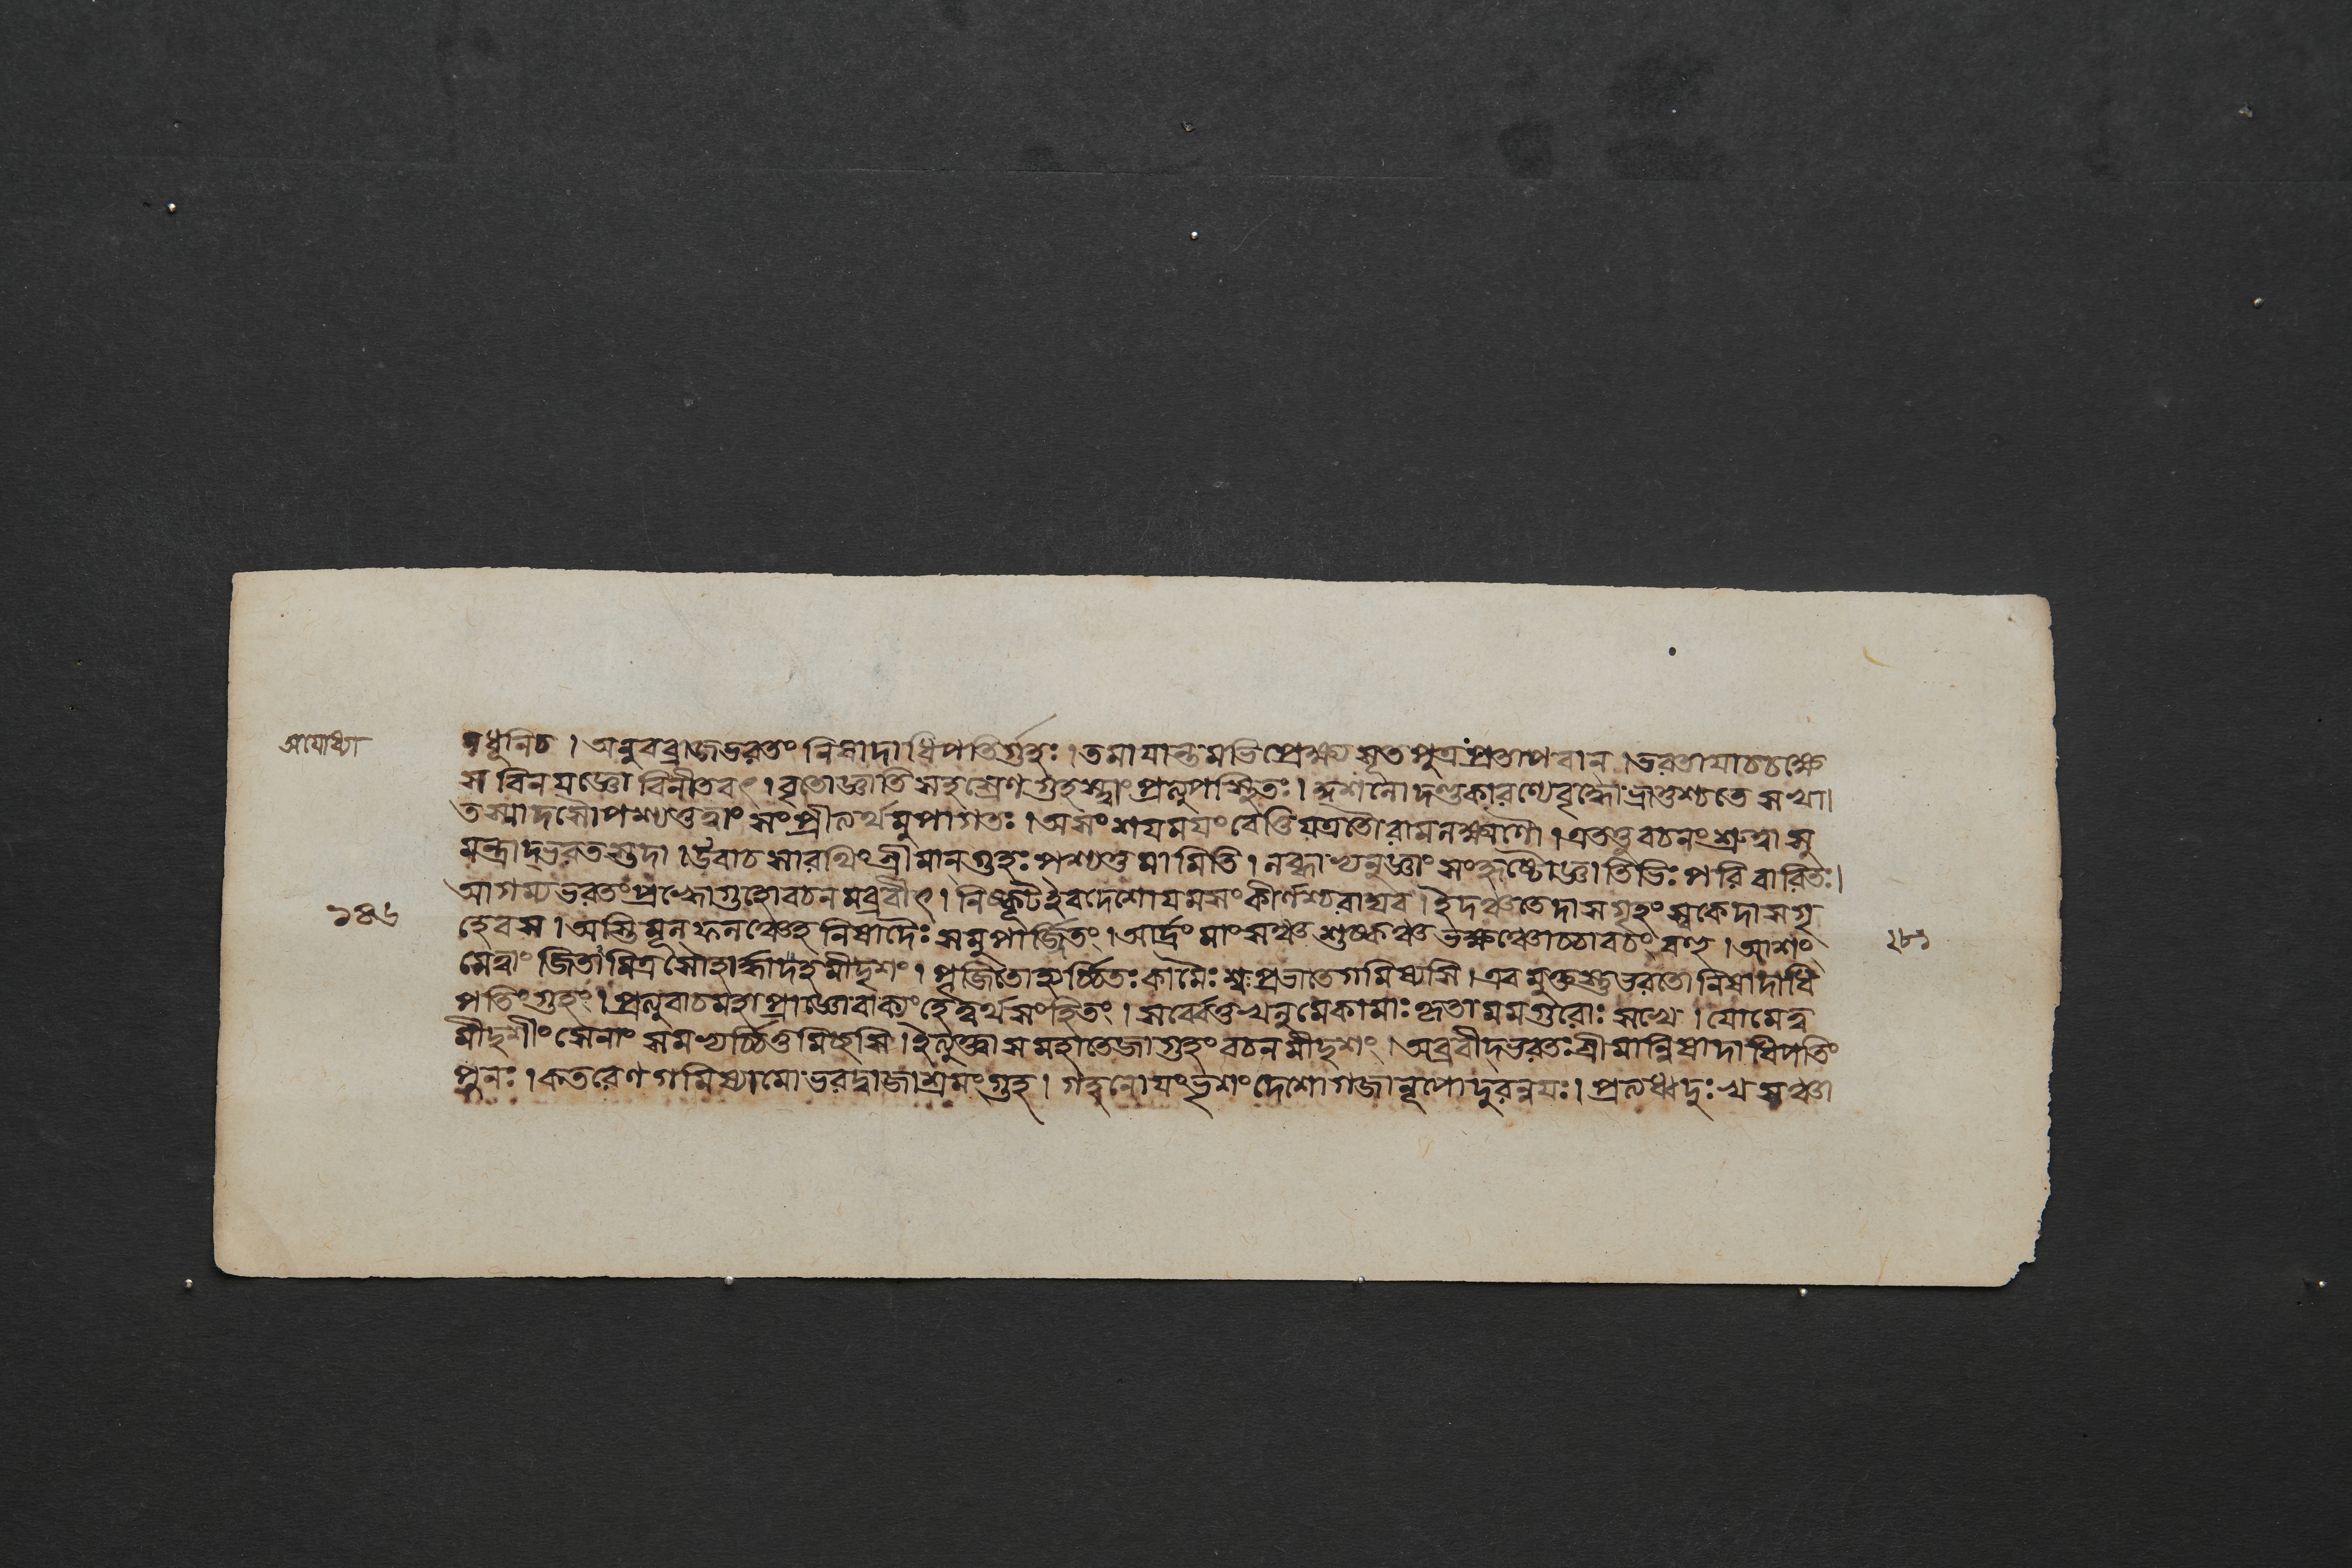 অযোধ্যা
নধূনিচ । অনুবব্রাজভরতং নিষাদাধিপতির্গুহঃ । তমাযান্তমভিপ্রেক্ষ্য সূতপুত্রঃপ্রতাপবান্ । ভরতাযাচচক্ষে
স বিনযজ্ঞো বিনীতবৎ । বৃতোজ্ঞাতিসহস্রেণ গুহস্ত্বাং প্রত্যুপস্থিতঃ । দণ্ডকারণ্যেবৃদ্ধো ভ্রাতুশ্চতে সখা ।
তস্মাদসৌপশ্যতুত্বাং সংপ্রীত্যর্থমুপাগতঃ । অসংশযমযংবেত্তি যত্রতৌ রামলক্ষ্মণৌ । এতত্তুবচনংশ্রুত্বা সু
মন্ত্রাদ্ভরতস্তদা । উবাচ সারথিং শ্রীমান্ গুহঃ পশ্যতু মামিতি । লব্ধাভ্যনুজ্ঞাং সংহৃষ্টো জ্ঞাতিভিঃ পরিবারিতঃ ।
আগম্য ভরতংপ্রহ্বোগুহোবচনমব্রবীৎ । নিষ্কুটইবদেশোযমসংকীর্ণশ্চবান্ধব । ইদঞ্চতেদাসগৃহং স্বকেদাসগৃ
১৪৬
হেবস । অস্তি মূলফলঞ্চেহ নিষাদৈঃ সমুপার্জ্জিতং । আর্দ্রং মাংসঞ্চ শুষ্কঞ্চ ভক্ষঞ্চোচ্চাবচং বহু । আশং
২৮১
সেত্বাং জিতামিত্র সৌহার্দ্দাদহমীদৃশং । পূজিতোহ্যর্চ্চিতঃ কামৈঃ শ্বঃপ্রভাতেগমিষ্যসি । এবমুক্তস্তুভরতোনিষাদাধি
পতিংগুহং । প্রত্যুবাচমহাপ্রাজ্ঞোবাক্যং হেত্বর্থসংহিতং । সর্ব্বেখলুমেকামাঃ কৃতা মমগুরোঃ সখে । যোমেত্ব
মীদৃশীং সেনাং সমভ্যর্চ্চিতুমিচ্ছসি । ইত্যুক্ত্বা সমহাতেজাগুহং বচনমীদৃশং । অব্রবীদ্ভরতঃ শ্রীমান্নিষাদাধিপতিং
পুনঃ । কতরেণ গমিষ্যামো ভরদ্বাজাশ্রমং গুহ । গহনোযংভৃশং দেশোগঙ্গানূপোদুরন্বযঃ ।